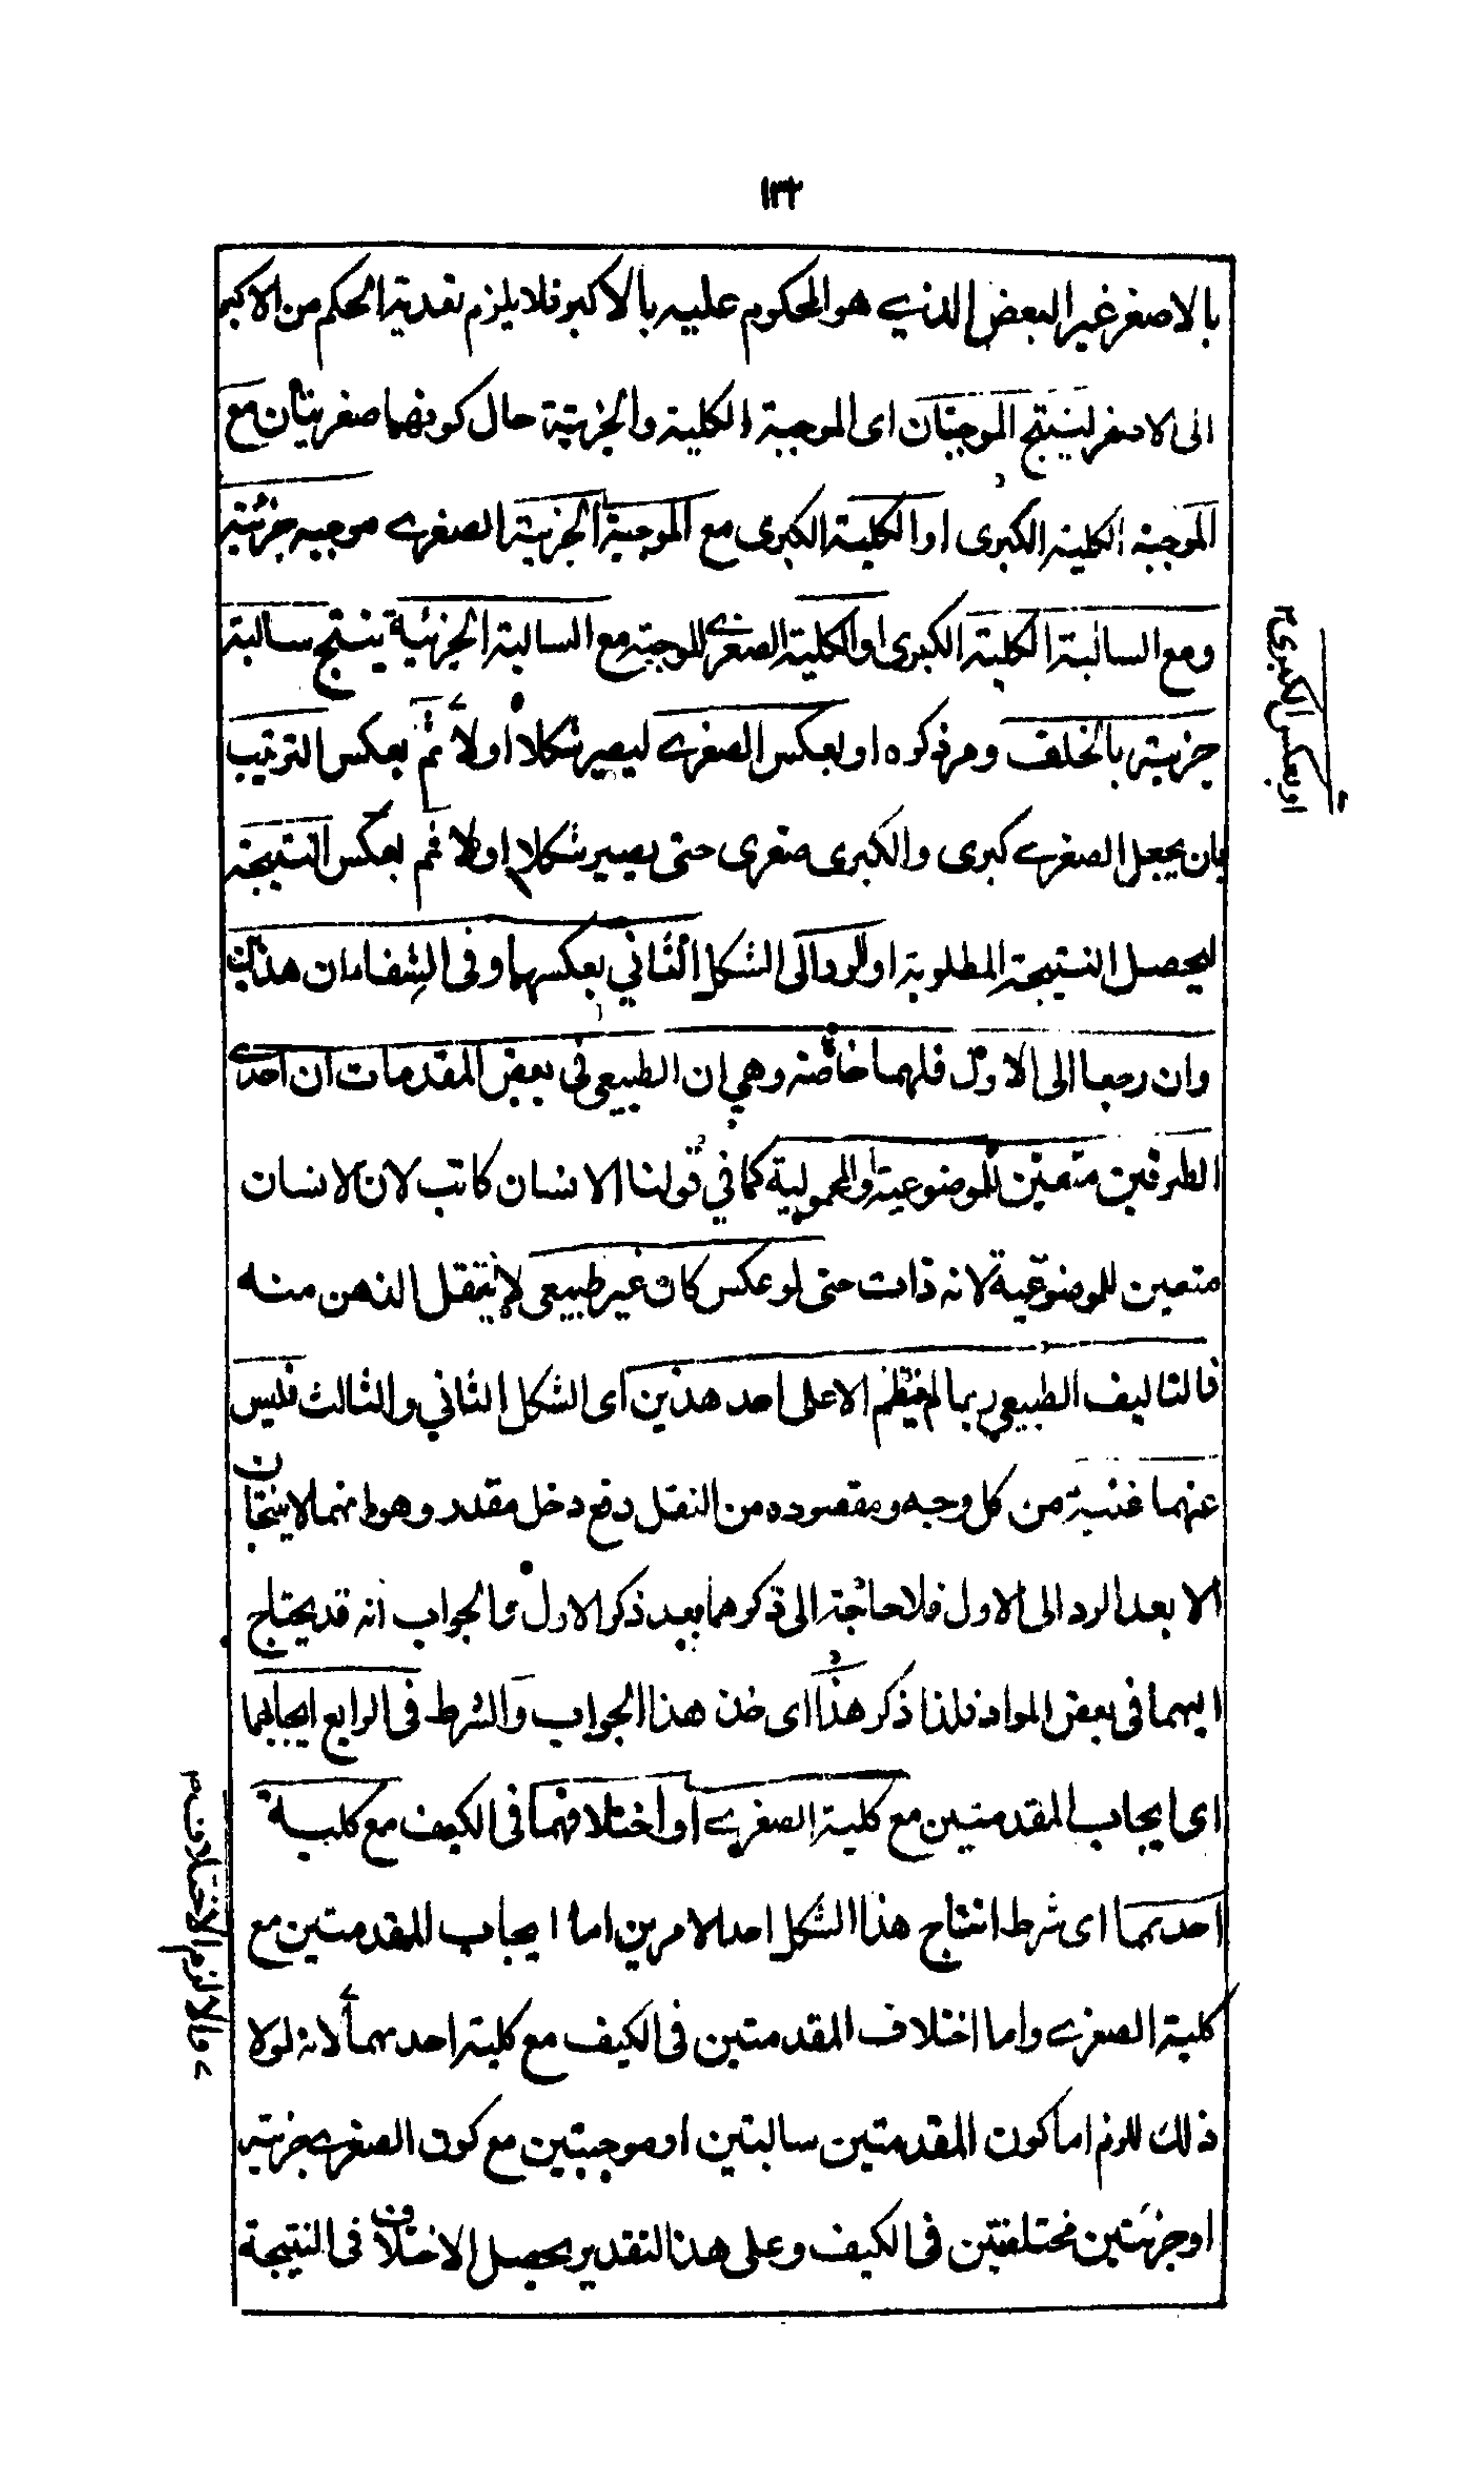 ١٣٢
بالاصغر غير البعض الذي هو المحكوم عليه بالاكبر فلا يلزم تعدية الحكم من الاكبر
الى الاصغر لينتج الموجبتان اى الموجبة الكلية والجزئية حال كونهما صغريتان مع
الموجبة الكلية الكبرى او الكلية الكبرى مع الموجبة الجزئية الصغرے موجبه جزئية
ومع السالبة الكلية الكبرى او الكلية الصغرے الموجبة مع السالبة الجزئية ينتج سالبة
جزئية بالخلف ومر ذكره او بعكس الصغرے ليصير شكلا اولا ثم بعكس الترتيب
بان يجعل الصغرے كبرى والكبرى صغرى حتى يصير شكلا اولا ثم بعكس النتيجة
ليحصل النتيجة المطلوبة او الرد الى الشكل الثاني بعكسهما وفى الشفاء ان هذين
وان رجعا الى الاول فلهما خاصة وهي ان الطبيعى فى بعض المقدمات ان احدے
الطرفين متعين للموضوعية والمحمولية كما في قولنا الانسان كاتب لان الانسان
متعين للموضوعية لانه ذات حتى لو عكس كان غير طبيعى لا ينتقل الذهن منه
فالتاليف الطبيعي ربما لم ينتظم الا على احد هذين اى الشكل الثاني والثالث فليس
عنهما غنية من كل وجه ومقصوده من النقل دفع دخل مقدر وهو انهما لا ينتجان
الا بعد الرد الى الاول فلا حاجة الى ذكرهما بعد ذكر الاول والجواب انه قد يحتاج
اليهما فى بعض المواد فلذا ذكر هذا اى خذ هذا الجواب والشرط فى الرابع ايجابهما
اى ايجاب المقدمتين مع كلية الصغرے او اختلافهما فى الكيف مع كلية
احدهما اى شرط انتاج هذا الشكل احد الامرين اما ايجاب المقدمتين مع
كلية الصغرے واما اختلاف المقدمتين فى الكيف مع كلية احدهما لانه لولا
ذلك للزم اما كون المقدمتين سالبتين او موجبتين مع كون الصغرے جزئية
او جزئيتين مختلفتين فى الكيف وعلى هذا التقدير يحصل الاختلاف فى النتيجة
او بعكس الكبرى
والا لزم الاختلاف